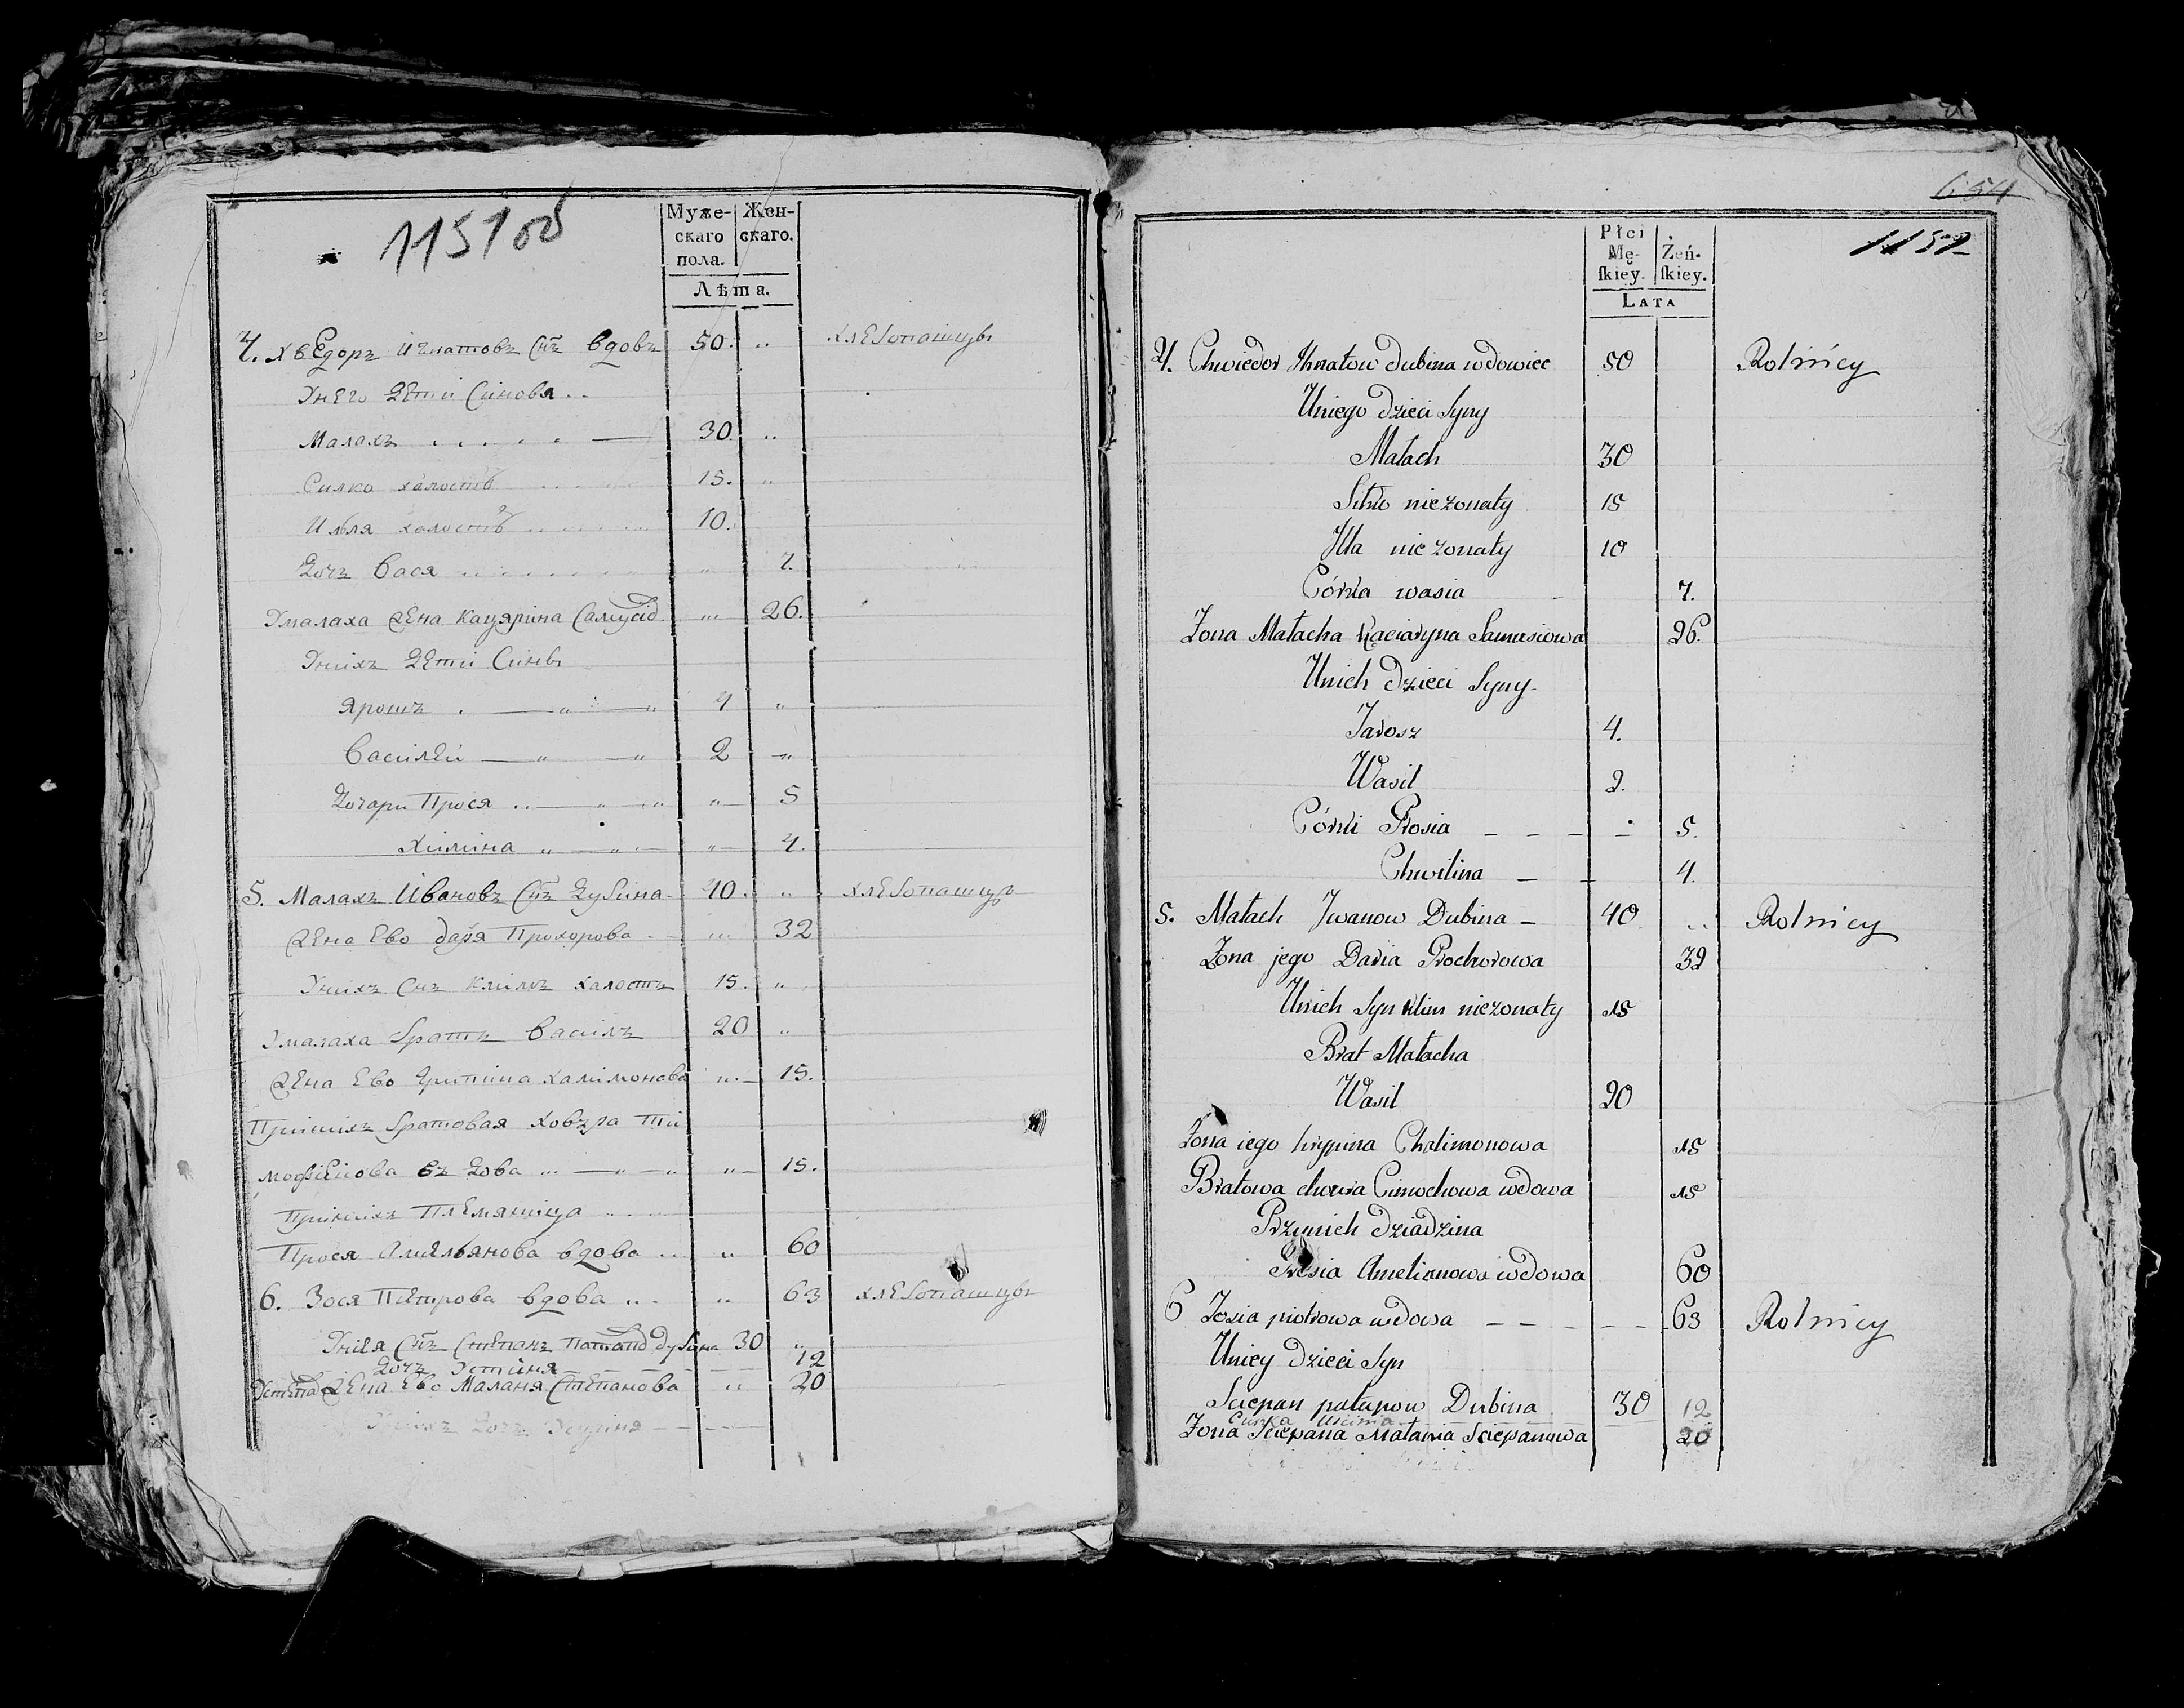 1151 об
Муже-
скаго
пола.
Жен-
скаго.
Лѣта.
4. Хведоръ Игнатовъ Снъ вдовъ 50. " хлебопашцы
Унего дети Синовя..
Малахъ 30. "
Силко халостъ 15. "
Илля халостъ 10.
Дочъ Вася " 7.
Умалаха жена Кацярина " 26.
Унихъ дети Сины
Ярошъ 4 "
Василей 2 "
Дочари Прося " 5
Химина " 4.
5. Малахъ Ивановъ Снъ Дубина 40. " хлебопашцы
жена Ево даря Прохорова " 32
Унихъ Снъ Климъ халостъ 15. "
Умалаха братъ Василъ 20 "
жена Ево Грипина халимонова " 15.
Принихъ братовая
" 15.
Принихъ
Прося Амельянова вдова " 60
6. Зося Петрова вдова " 63 хлебопашцы
Унея Снъ Степанъ дубина 30 "
Дочъ Устиня 12
жена Ево Маланя Степанова " 20
Унихъ Дочъ
654
1152
Płci
Mę-
skiey.
Żeń-
skiey.
LATA
4. Chwiedor Ihnatow dubina wdowiec 50 Rolnicy
Uniego dzieci Syny
Małach 30
Siłko niezonaty 15
Illa niezonaty 10
Córka wasia 7.
Zona Małacha Kaciaryna Samusiowa 26.
Unich dzieci Syny
Jarosz 4.
Wasil 2.
Córki Prosia 5.
Chwilina 4.
5. Małach Iwanow Dubina 40 Rolnicy
Zona jego Daria Prochorowa 32
Unich Syn Klim niezonaty 15
Brat Małacha
Wasil 20
Zona iego hrypina Chalimonowa 15
Bratowa Cimochowa wdowa 15
Przynich dziadzina
Prosia Amelianowa wdowa 60
6 Zosia piotrowa wdowa 63 Rolnicy
Uniey dzieci Syn
Sciepan patapow Dubina 30
Curka Uscinia 12
Zona Sciepana Małania Sciepanowa 20